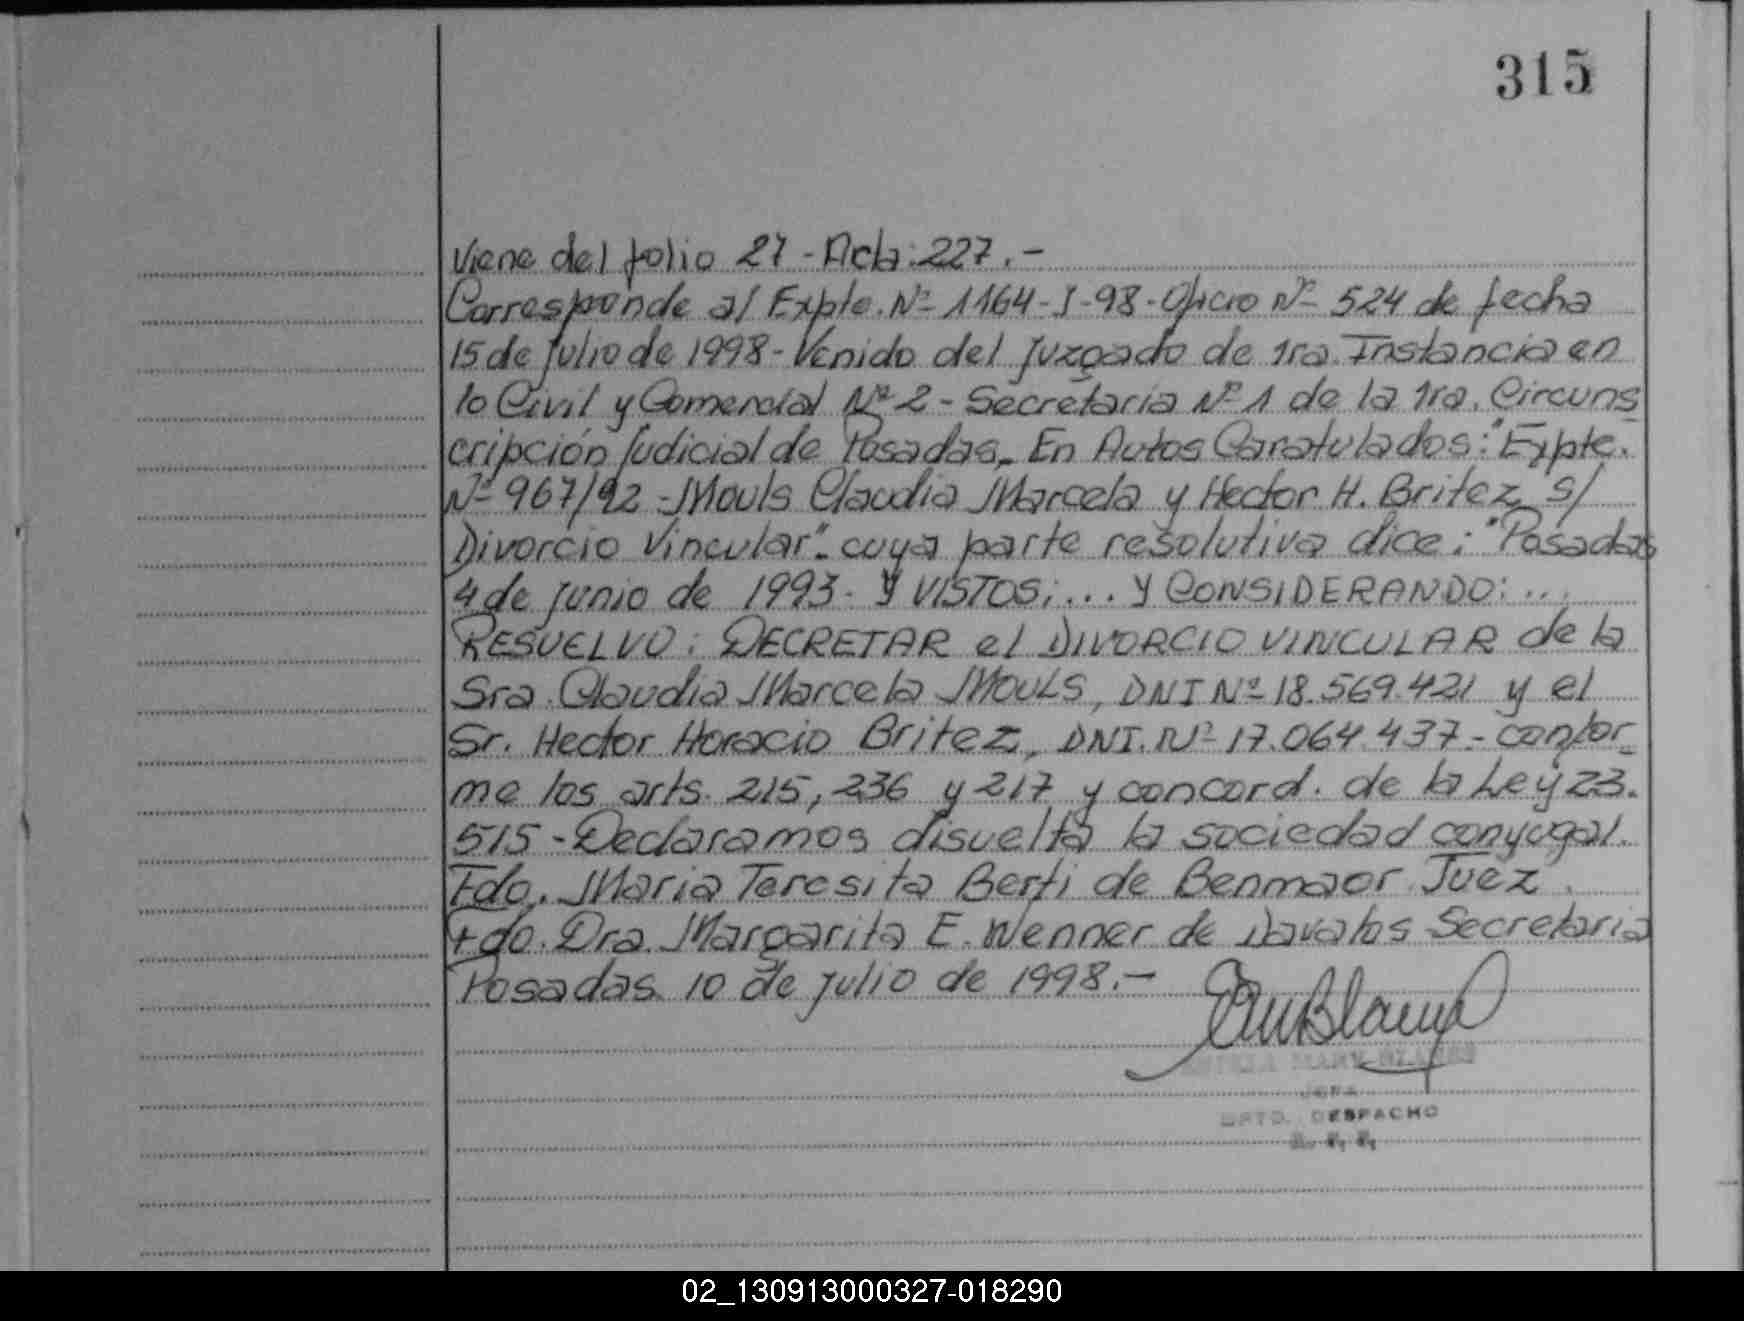 315
Viene del folio 27 - Acta: 227.-
Corresponde al Expte. Nº 1164-I-98- Oficio Nº 524 de fecha
15 de julio de 1998- Venido del Juzgado de 1ra. Instancia en
lo Civil y Comercial Nº 2 - Secretaria Nº 1 de la 1ra. Circuns
cripción Judicial de Posadas. En Autos Caratulados: "Expte.
Nº 967/92 - Mouls Claudia Marcela y Hector H. Britez s/
Divorcio Vincular". cuya parte resolutiva dice: "Posadas
4 de junio de 1993. Y VISTOS; ... Y CONSIDERANDO: ...
RESUELVO: DECRETAR el DIVORCIO VINCULAR de la
Sra. Claudia Marcela MOULS, DNI Nº 18.569.421 y el
Sr. Hector Horacio Britez, DNI. Nº 17.064.437.- confor_
me los arts. 215, 236 y 217 y concord. de la Ley 23.
515 - Declaramos disuelta la sociedad conyugal.
Fdo. Maria Teresita Berti de Benmaor Juez.
Fdo. Dra. Margarita E. Wenner de Davalos Secretaria
Posadas 10 de julio de 1998.-
JEFA
DPTO. DESPACHO
02_130913000327-018290